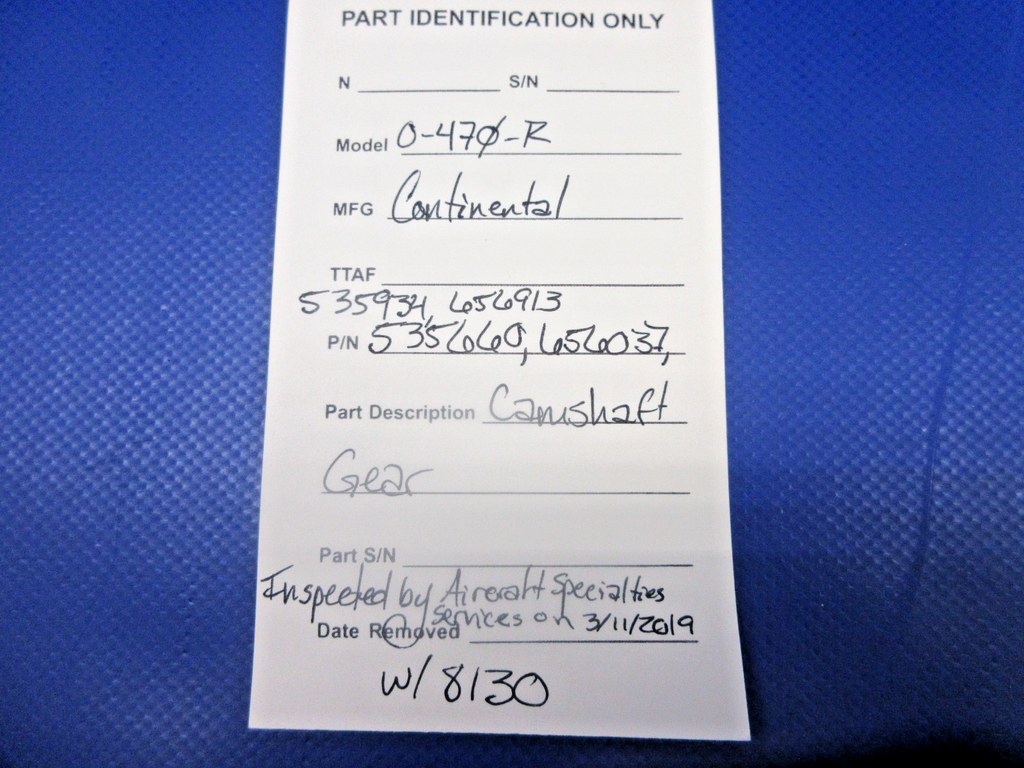 PART IDENTIFICATION ONLY
N S/N
Model O-470-R
MFG Continental
TTAF
535934, 656913
P/N 535660, 656037,
Part Description Camshaft
Gear
Part S/N
Inspected by Aircraft Specialties
Services on 3/11/2019
Date Removed
w/ 8130